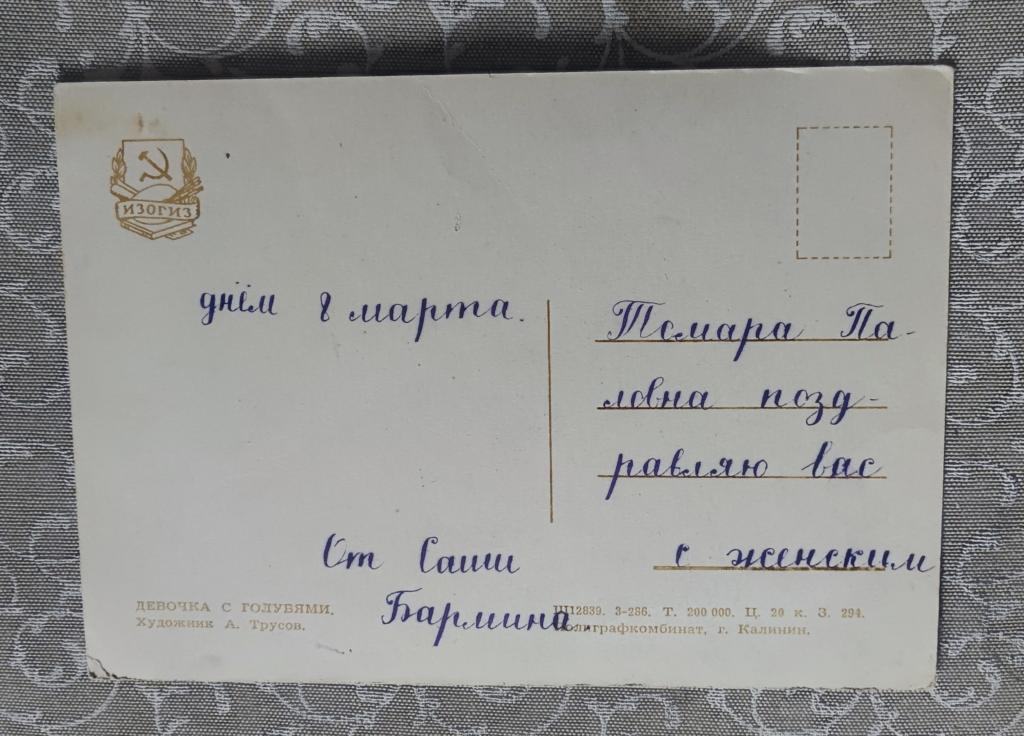 ИЗОГИЗ
Томара Па-
ловна позд-
равляю вас
с женским
днём 8 марта.
От Саши
Бармина.
ДЕВОЧКА С ГОЛУБЯМИ.
Художник А. Трусов.
Ш12839. 3-286. Т. 200 000. Ц. 20 к. З. 294.
Полиграфкомбинат, г. Калинин.